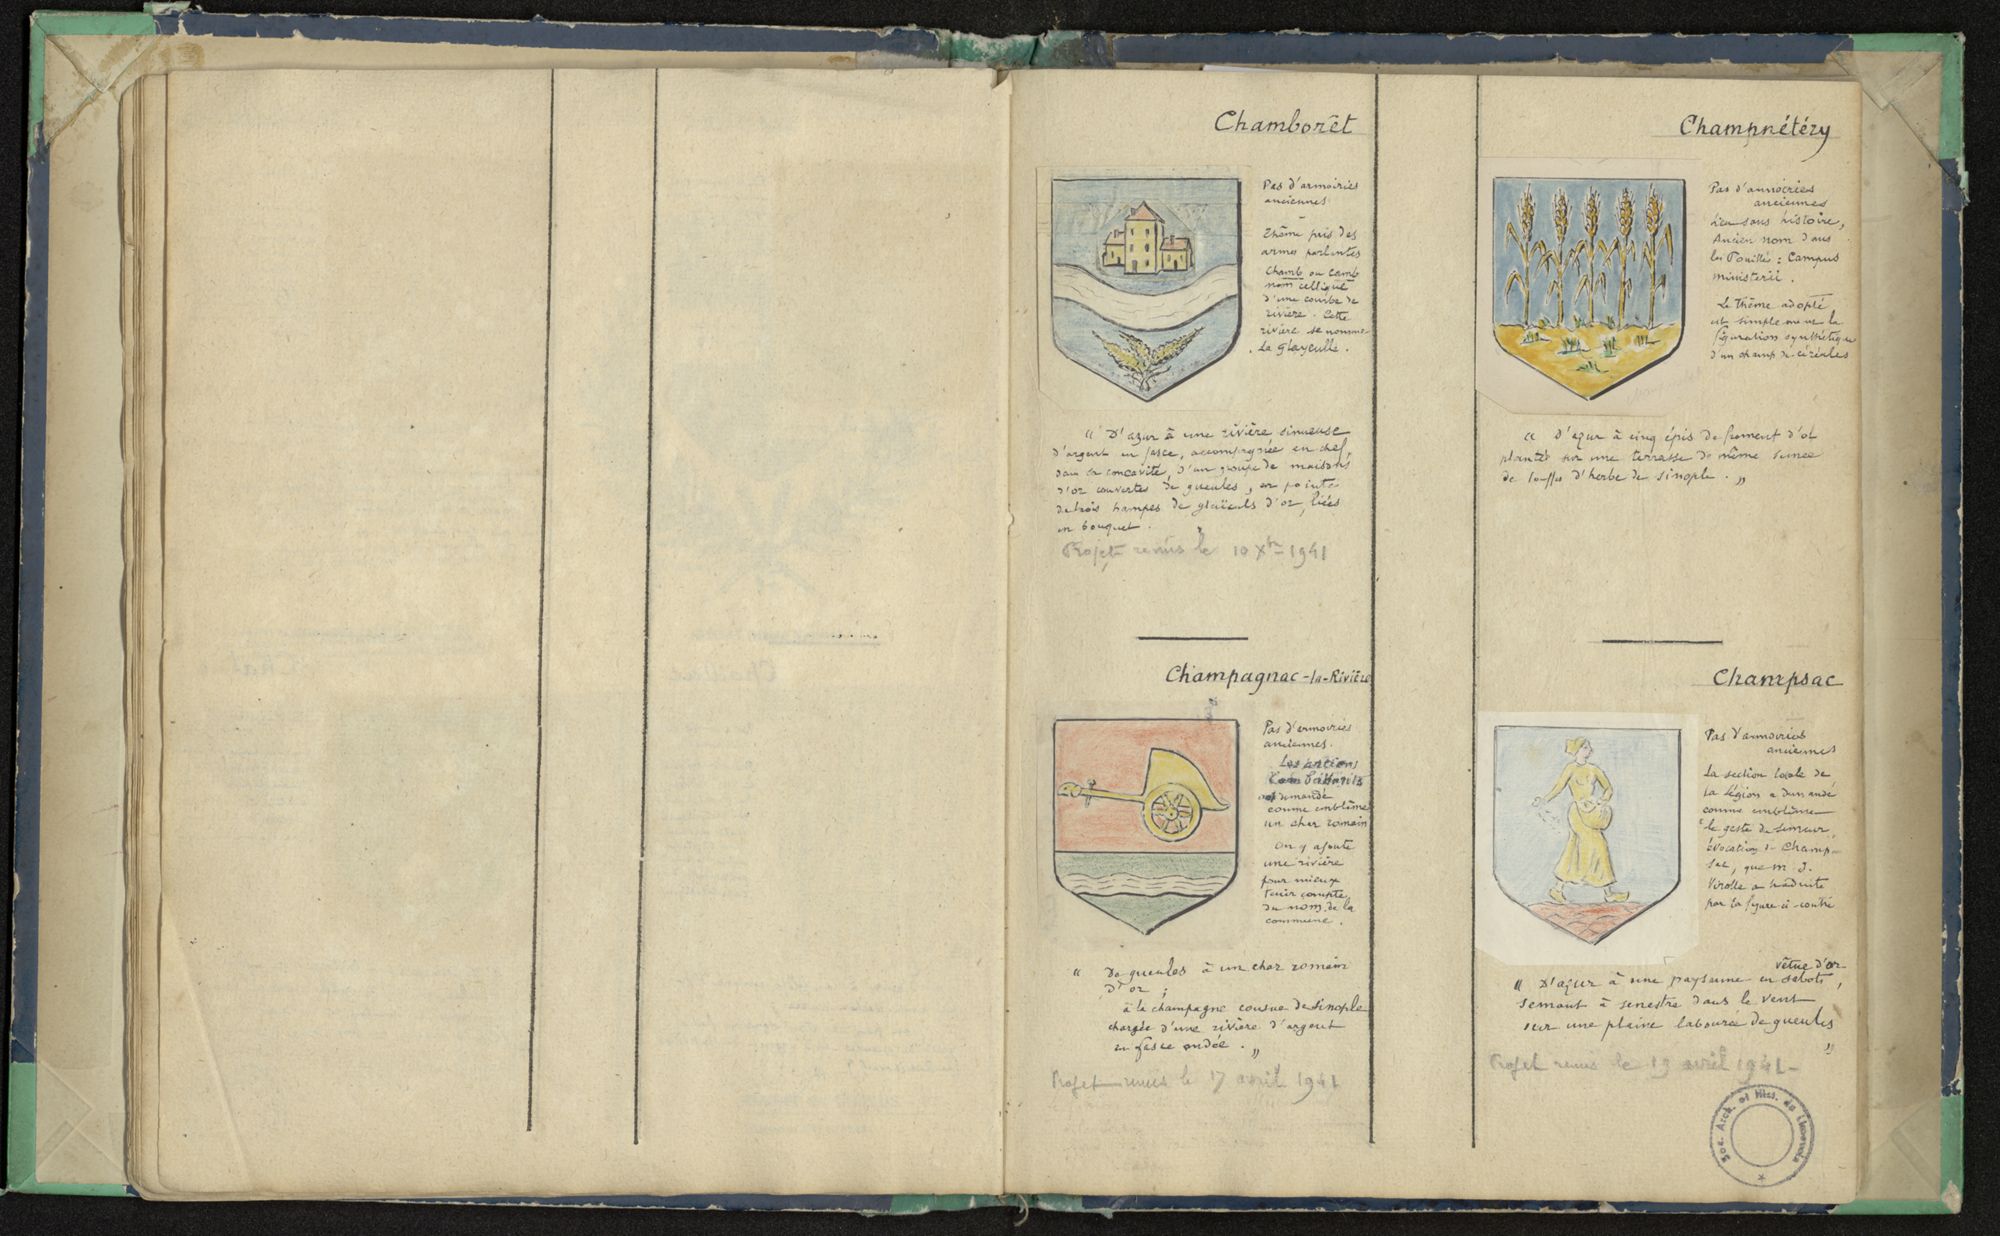 Chamborêt
Pas d'armoiries
anciennes
Thême pris des
armes parlantes
Chamb ou camb
nom celtique
d'une courbe de
rivière. Cette
rivière se nomme
La Glayeulle.
" D'azur à une rivière sinueuse
d'argent en fasce, accompagnée en chef,
dans sa concavité, d'un groupe de maisons
d'or couvertes de gueules, en pointe
de trois hampes de glaïeuls d'or, liées
en bouquet.
Projet remis le 10 Xbre 1941
Champagnac-la-Rivière
Pas d'armoiries
anciennes.
Les anciens
Combattants
ont demandé
comme emblême
un char romain
On y ajoute
une rivière
pour mieux
tenir compte
du nom de la
commune.
" De gueules à un char romain
D'or ;
à la champagne cousue de sinople
chargée d'une rivière d'argent
en fasce ondée. "
Projet remis le 17 avril 1941
Champnétéry
Pas d'armoiries
anciennes
Lieu sans histoire,
Ancien nom dans
les Pouillés : Campus
ministerii.
Le Thême adopté
est simplement la
figuration synthétique
d'un champ de céréales
" D'azur à cinq épis de froment d'or
plantés sur une terrasse de même semée
de touffes d'herbe de sinople. "
Champsac
Pas d'armoiries
anciennes
La section locale de
la Légion a demandé
comme emblême
le geste du semeur,
évocation de Champ-
sac, que M. J.
Virolle a traduite
par la figure ci-contre
vêtue d'or
" D'azur à une paysanne en sabots,
semant à senestre dans le vent
sur une plaine labourée de gueules
"
Projet remis le 19 avril 1941-
Soc. Arch. et Hist. du Limousin